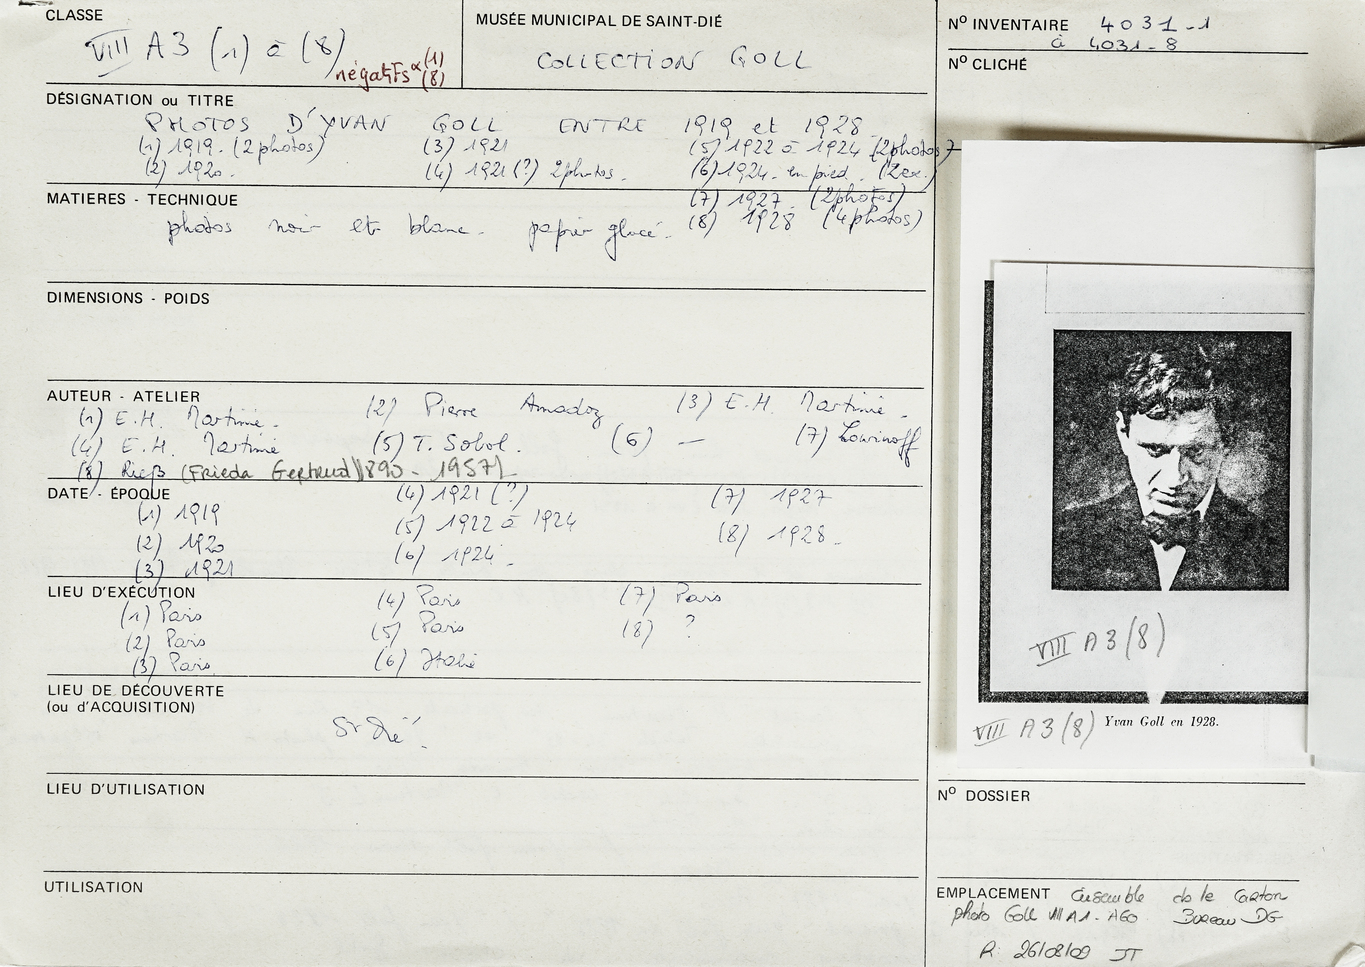 CLASSE
VIII A3 (1) à (8)
négatifs (1)
(8)
MUSÉE MUNICIPAL DE SAINT-DIÉ
COLLECTION GOLL
N° INVENTAIRE 4031-1
à 4031-8
N° CLICHÉ
DÉSIGNATION ou TITRE
PHOTOS D'YVAN GOLL ENTRE 1919 et 1928
(1) 1919. (2 photos) (3) 1921 (5) 1922 à 1924 (2 photos)
(2) 1920. (4) 1921 (?) 2 photos. (6) 1924. en pied. (2 ex.)
(7) 1927. (2 photos)
(8) 1928 (4 photos)
MATIERES - TECHNIQUE
photos noir et blanc. papier glacé.
DIMENSIONS - POIDS
AUTEUR - ATELIER
(1) E.H. Martinie. (2) Pierre Amadoz (3) E.H. Martinie.
(4) E.H. Martinie (5) T. Sobol. (6) — (7) Lowinoff
(8) Rieß (Frieda Gertrud) 1890 - 1957)
DATE - ÉPOQUE
(1) 1919 (4) 1921 (?) (7) 1927
(2) 1920 (5) 1922 à 1924 (8) 1928.
(3) 1921 (6) 1924.
LIEU D'EXÉCUTION
(1) Paris (4) Paris (7) Paris
(2) Paris (5) Paris (8) ?
(3) Paris (6) Italie
LIEU DE DÉCOUVERTE
(ou d'ACQUISITION)
St Dié.
LIEU D'UTILISATION
UTILISATION
VIII A3 (8)
VIII A3 (8) Yvan Goll en 1928.
N° DOSSIER
EMPLACEMENT ensemble ds le Carton
photo Goll VIII A1 - A60 Bureau DG
R. 26/08/09 JT